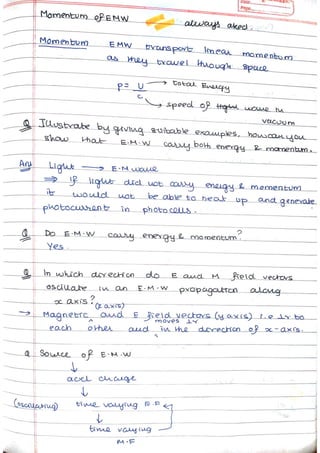 Date
Page
Momentum of EMW always asked.
Momentum EMW transport linear momentum
as they travel through space
p = U → total Energy
c → speed of light wave in
vacuum
Q Illustrate by giving suitable examples, how can you
show that E.M.W carry both energy & momentum.
Ans Light → E.M wave
⇒ If light did not carry energy & momentum
it would not be able to heat up and generate
photocurrent in photocells.
Q Do E.M.W carry energy & momentum?
Yes.
Q In which direction do E and M field vectors
oscillate in an E.M.W propagation along
x axis?
→ Magnetic (z axis) and E field vectors (y axis) i.e ⊥r to
each other and moves ⊥r in the direction of x-axis.
Q Source of E.M.W
↓
accl charge
↓
(oscillating) time varying E.F ←
↓
time varying
M.F